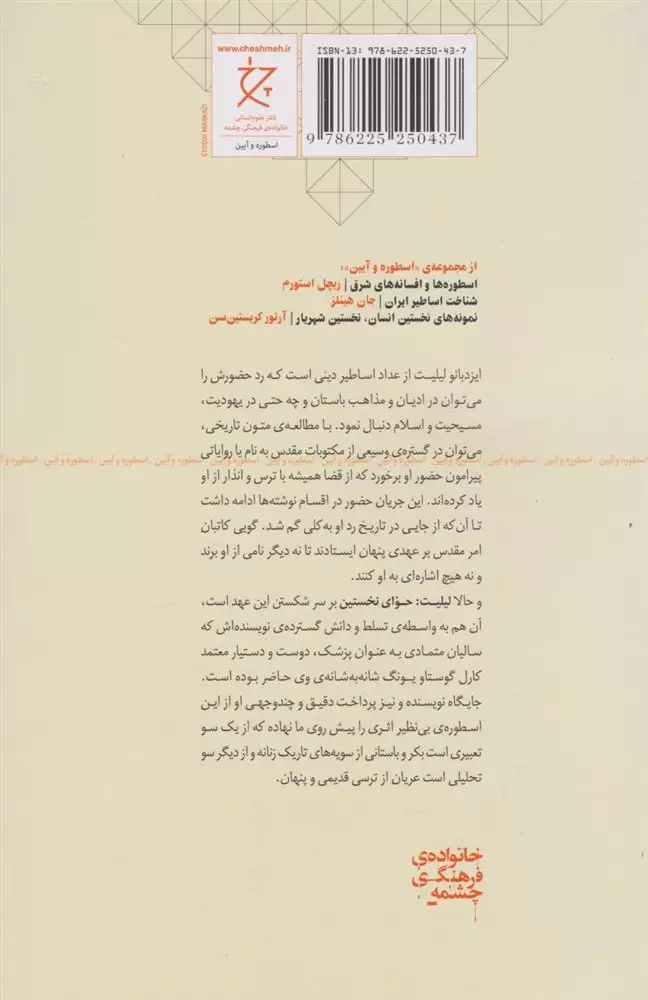 www.cheshmeh.ir
نشر علوم انسانی
خانواده‌ی فرهنگی چشمه
اسطوره و آیین
STUDIO MARKAZI
ISBN-13: 978-622-5250-43-7
9 786225 250437
از مجموعه‌ی «اسطوره و آیین»:
اسطوره‌ها و افسانه‌های شرق | ریچل استورم
شناخت اساطیر ایران | جان هینلز
نمونه‌های نخستین انسان، نخستین شهریار | آرتور کریستین‌سن
ایزدبانو لیلیت از عداد اساطیر دینی است که رد حضورش را
می‌توان در ادیان و مذاهب باستان و چه حتی در یهودیت،
مسیحیت و اسلام دنبال نمود. با مطالعه‌ی متون تاریخی،
می‌توان در گستره‌ی وسیعی از مکتوبات مقدس به نام یا روایاتی
اسطوره و آیین . اسطوره و آیین . اسطوره و آیین . اسطوره و آیین . اسطوره و آیین . اسطوره و آیین . اسطوره و آیین
پیرامون حضور او برخورد که از قضا همیشه با ترس و انذار از او
یاد کرده‌اند. این جریان حضور در اقسام نوشته‌ها ادامه داشت
تا آن‌که از جایی در تاریخ رد او به‌کلی گم شد. گویی کاتبان
امر مقدس بر عهدی پنهان ایستادند تا نه دیگر نامی از او برند
و نه هیچ اشاره‌ای به او کنند.
و حالا لیلیت: حوّای نخستین بر سر شکستن این عهد است،
آن هم به واسطه‌ی تسلط و دانش گسترده‌ی نویسنده‌اش که
سالیان متمادی به عنوان پزشک، دوست و دستیار معتمد
کارل گوستاو یونگ شانه‌به‌شانه‌ی وی حاضر بوده است.
جایگاه نویسنده و نیز پرداخت دقیق و چندوجهی او از این
اسطوره‌ی بی‌نظیر اثری را پیش روی ما نهاده که از یک سو
تعبیری است بکر و باستانی از سویه‌های تاریک زنانه و از دیگر سو
تحلیلی است عریان از ترسی قدیمی و پنهان.
خانواده‌ی
فرهنگی
چشمه